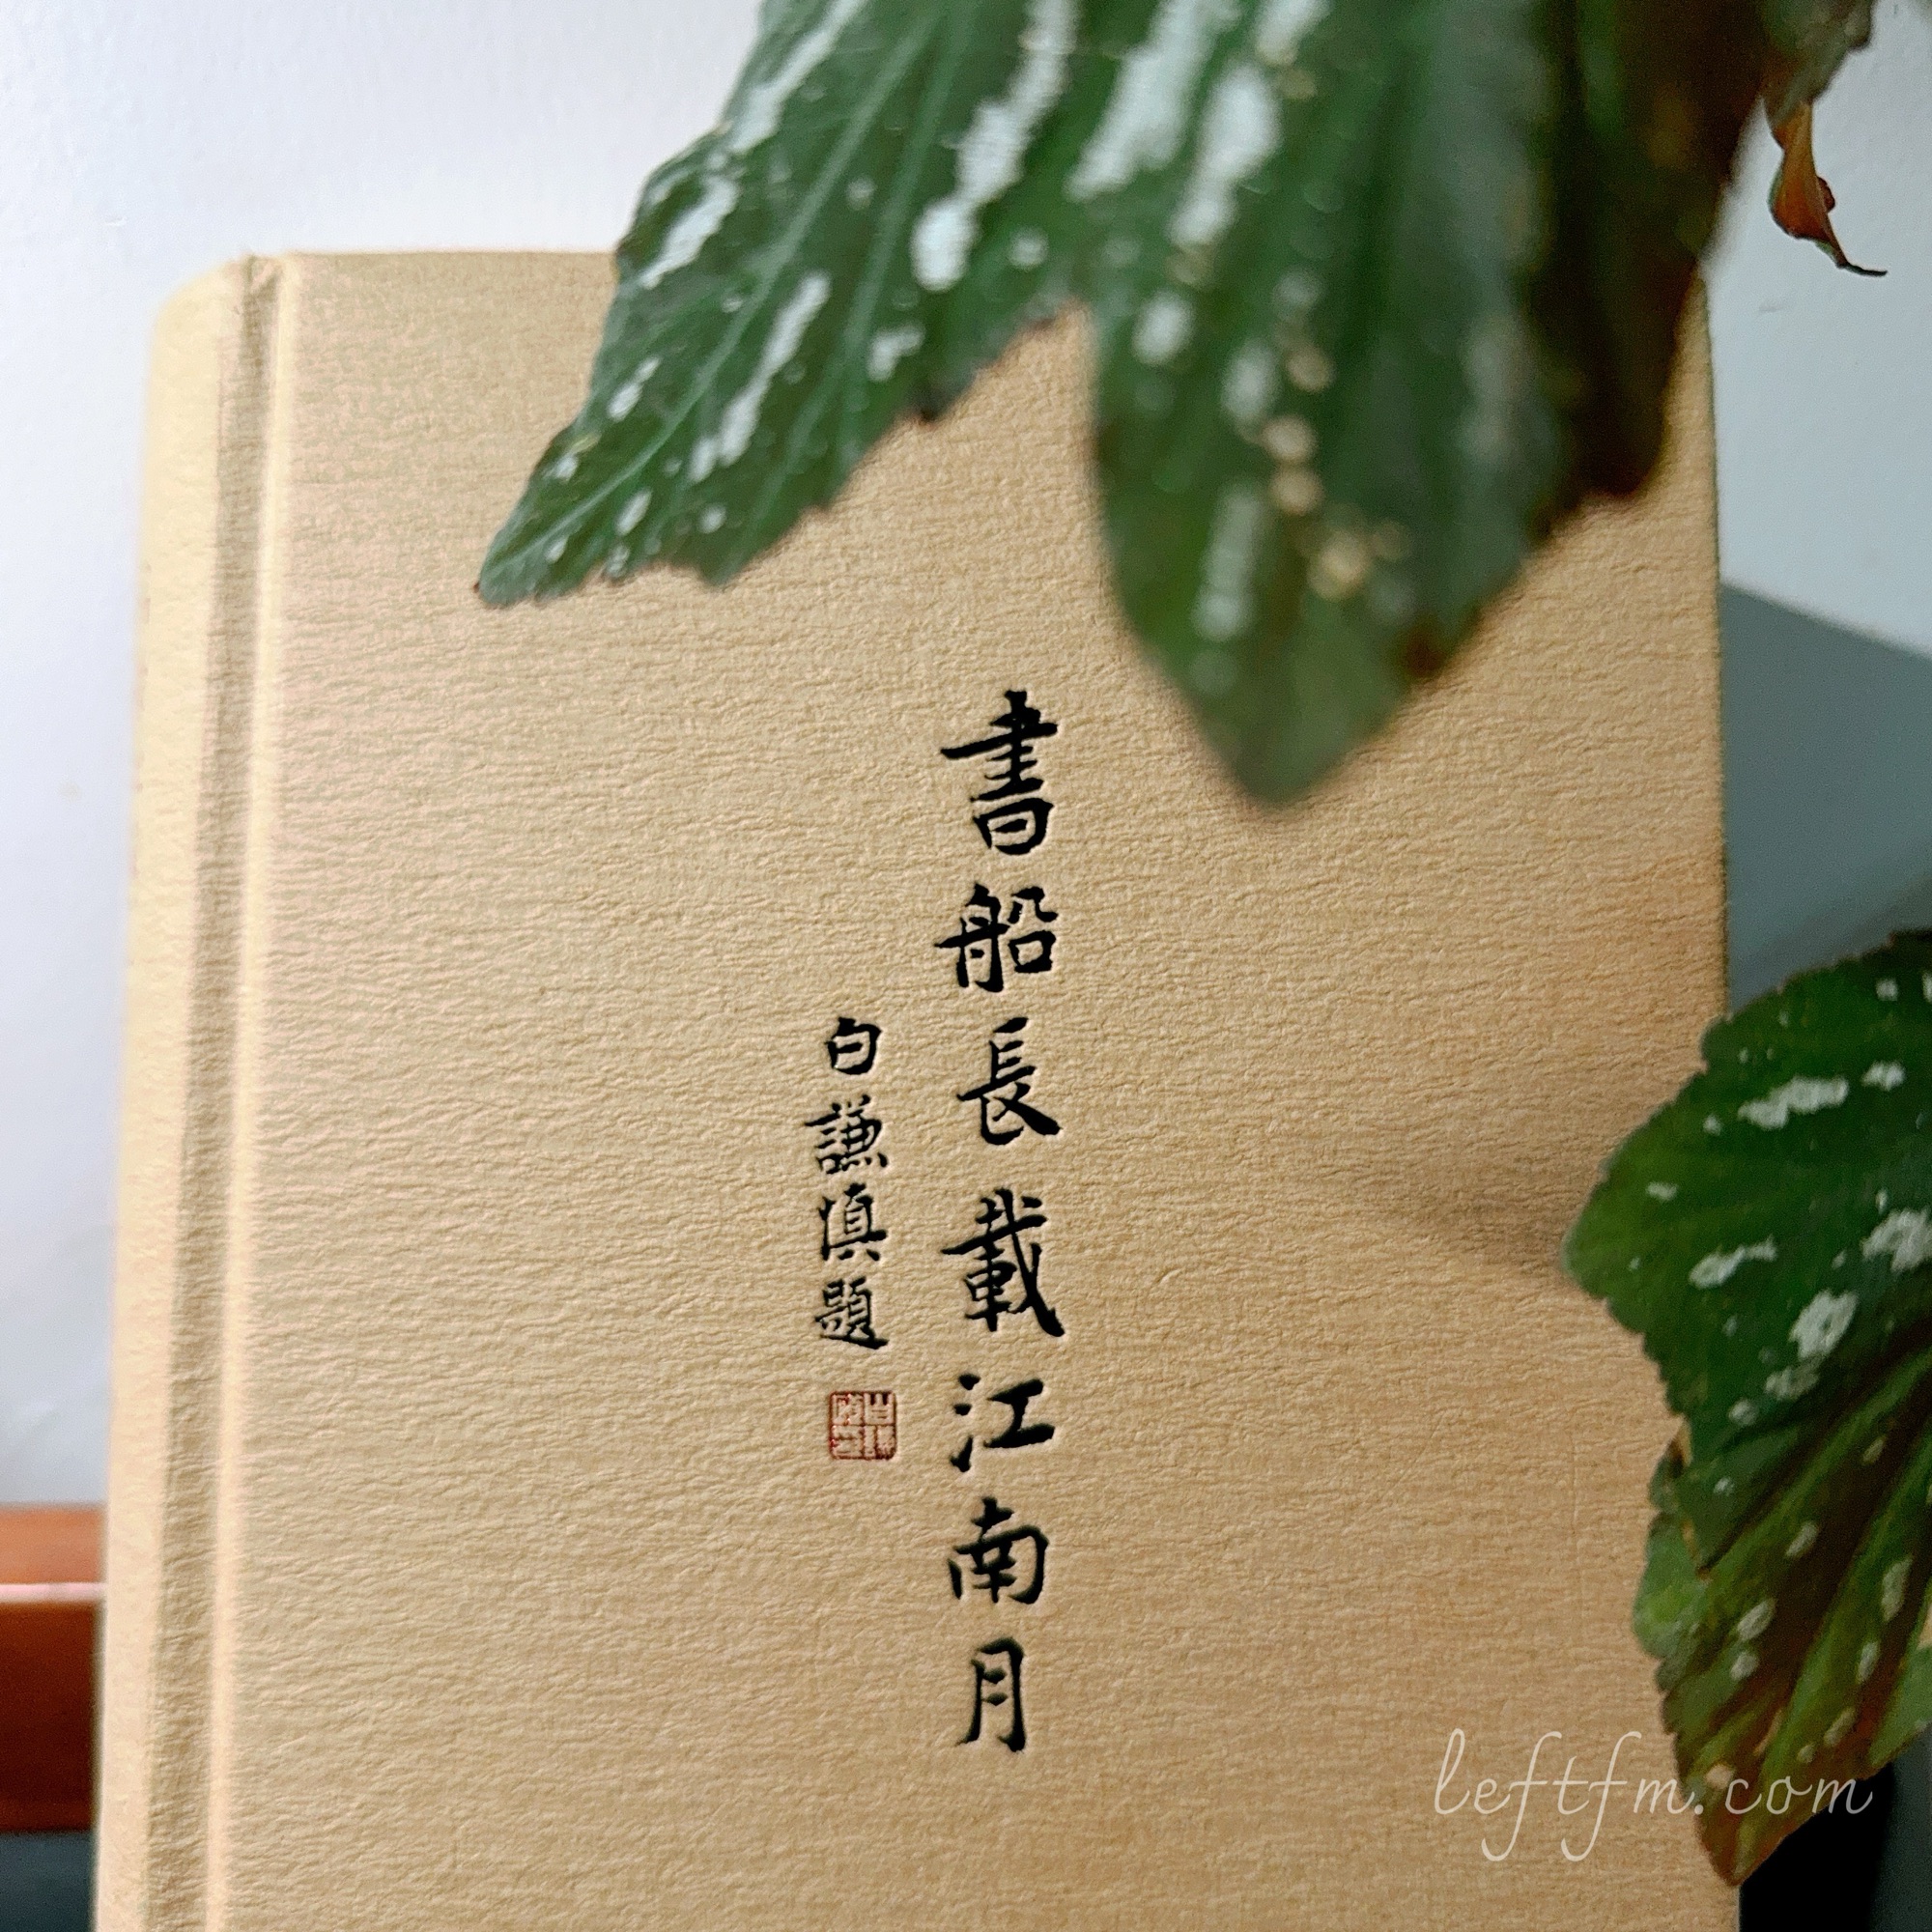 書船長載江南月
白謙慎題
leftfm.com